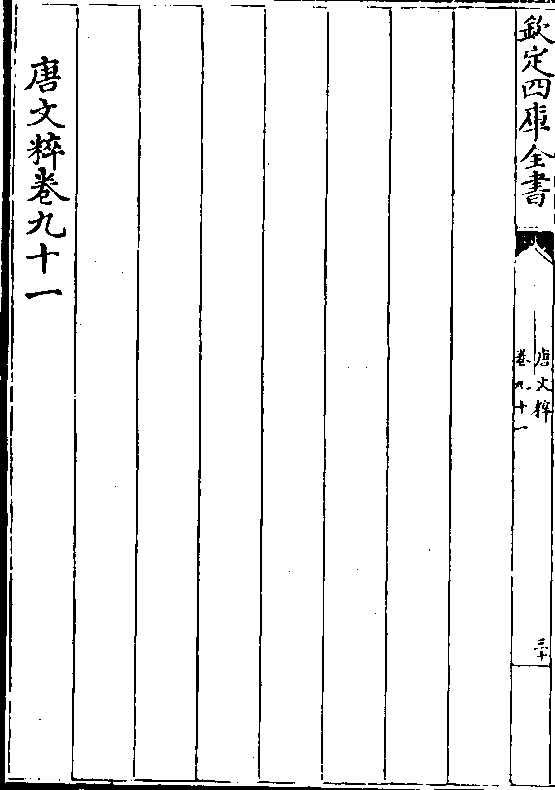 欽定四庫全書
唐文粹
卷九十一
三十
唐文粹卷九十一